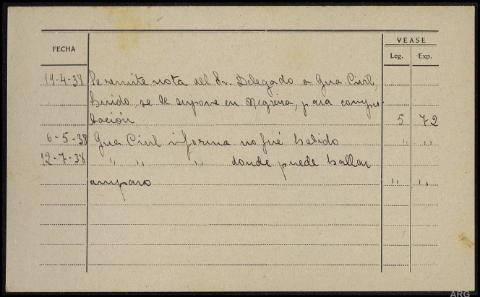 VEASE
FECHA
Leg. Exp.
19-4-38 Se remite nota del Sr. Delegado a Gua Civil,
huido, se le supone en Negrera, para compu-
tación 5 72
6-5-38 Gua Civil informa no fué habido " "
12-7-38 " " " donde puede hallar
amparo " "
ARG